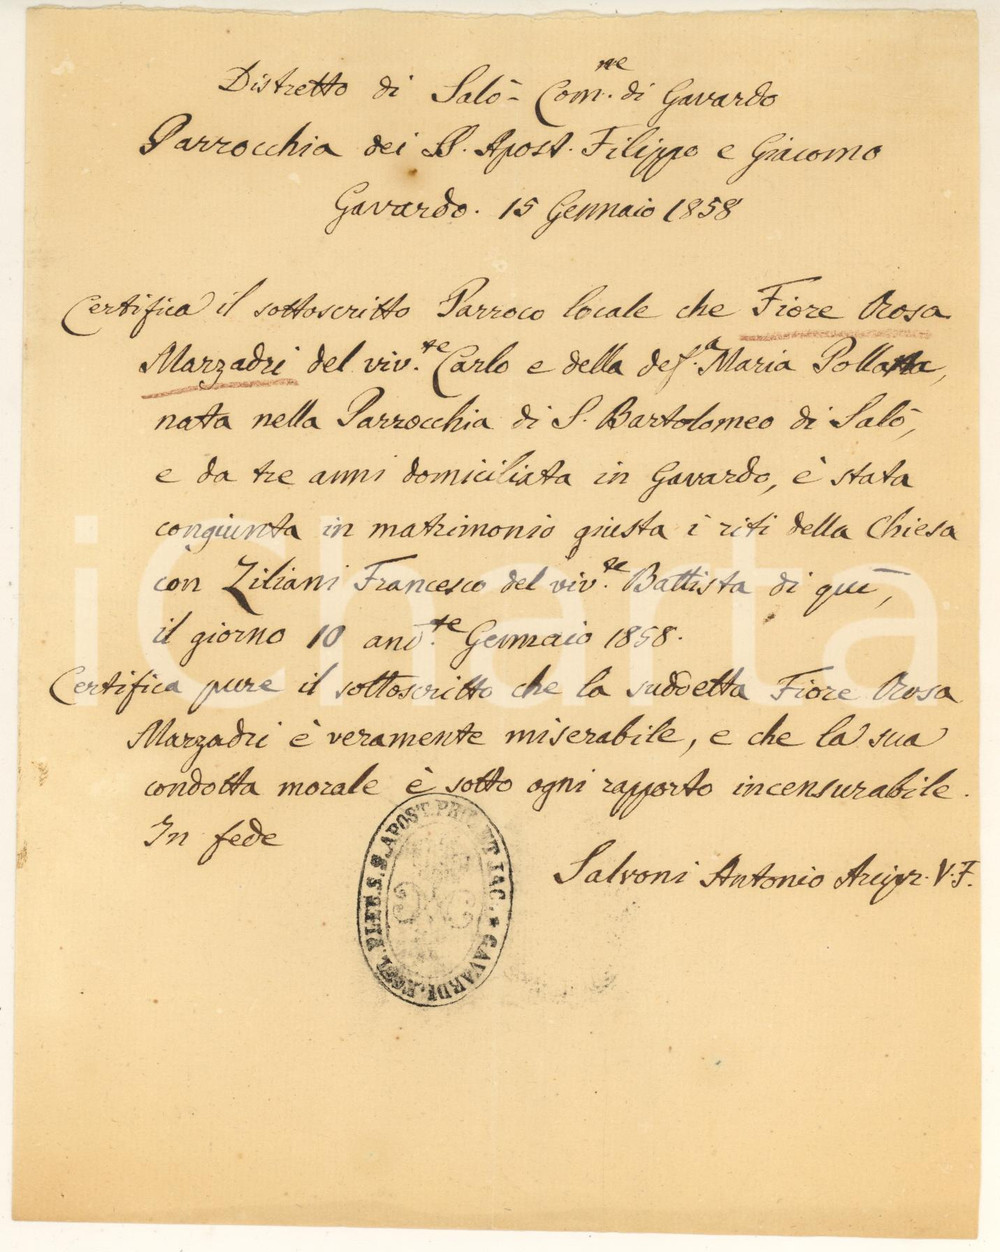 Distretto di Salò - Com.ne di Gavardo
Parrocchia dei SS. Apost. Filippo e Giacomo
Gavardo. 15 Gennaio 1858
Certifica il sottoscritto Parroco locale che Fiore Orosa
Marzadri del viv.te Carlo e della def.a Maria Pollatta,
nata nella Parrocchia di S. Bartolomeo di Salò,
e da tre anni domiciliata in Gavardo, è stata
congiunta in matrimonio giusta i riti della Chiesa
con Ziliani Francesco del viv.te Battista di quì,
il giorno 10 and.te Gennaio 1858.
Certifica pure il sottoscritto che la suddetta Fiore Orosa
Marzadri è veramente miserabile, e che la sua
condotta morale è sotto ogni rapporto incensurabile.
In fede
Salvoni Antonio Arcipr. V. F.
ECCL. PLEB. S.S. APOST. PHIL. ET JAC. * GAVARDI.
iCharta